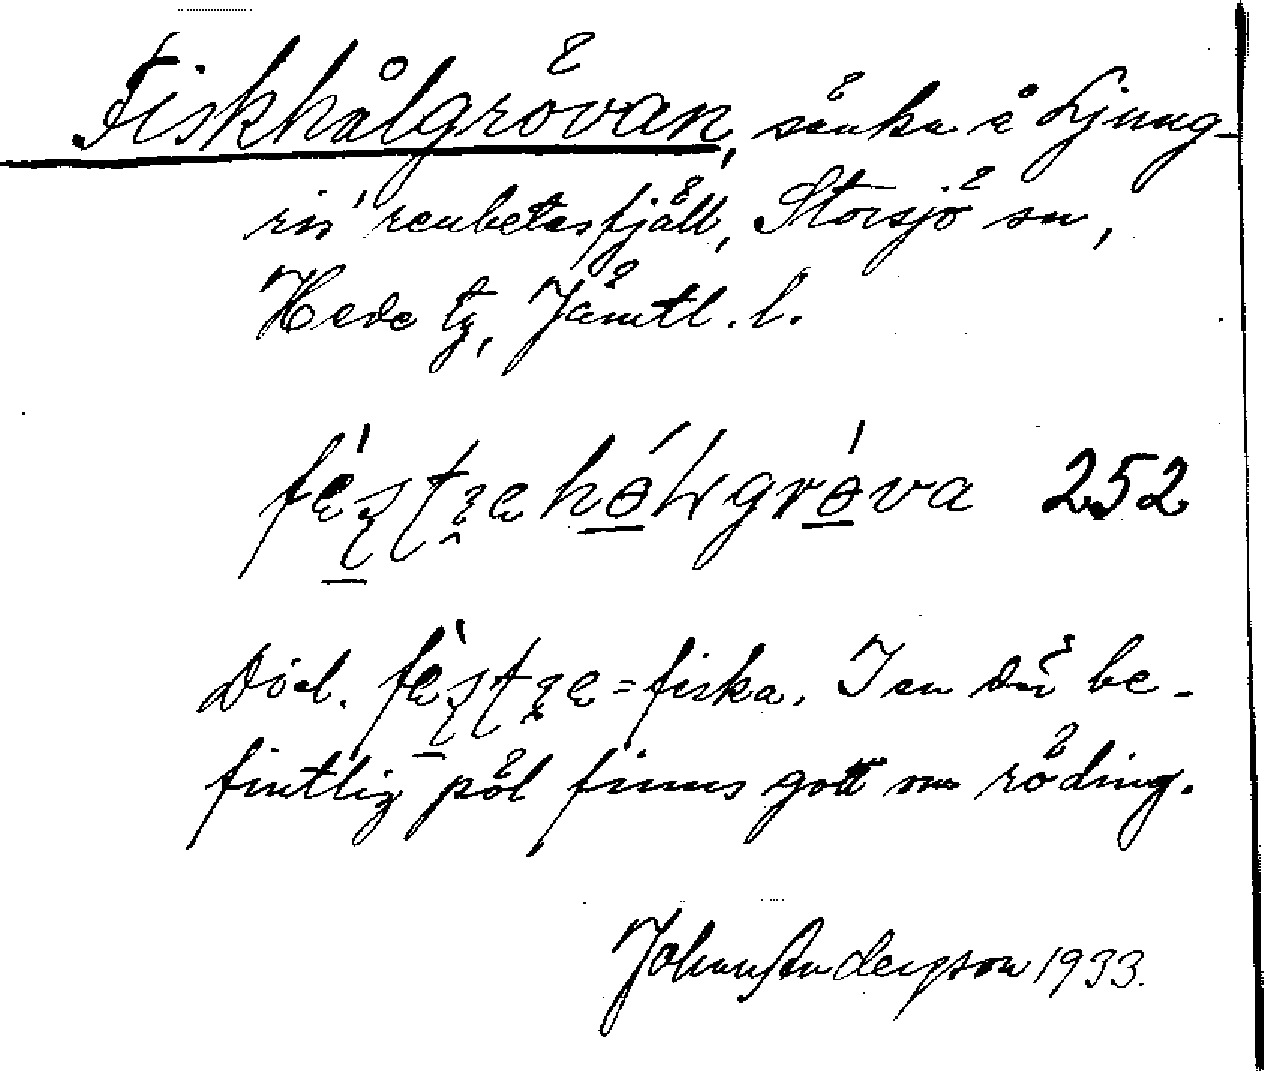 Fiskhålgrövan, sänka å Ljung-
ris' renbetesfjäll, Storsjö sn,
Hede tg, Jämtl. l.
252
Dial. = fiska. I en där be-
fintlig pöl finns gott om röding.
Johan Anderson 1933.